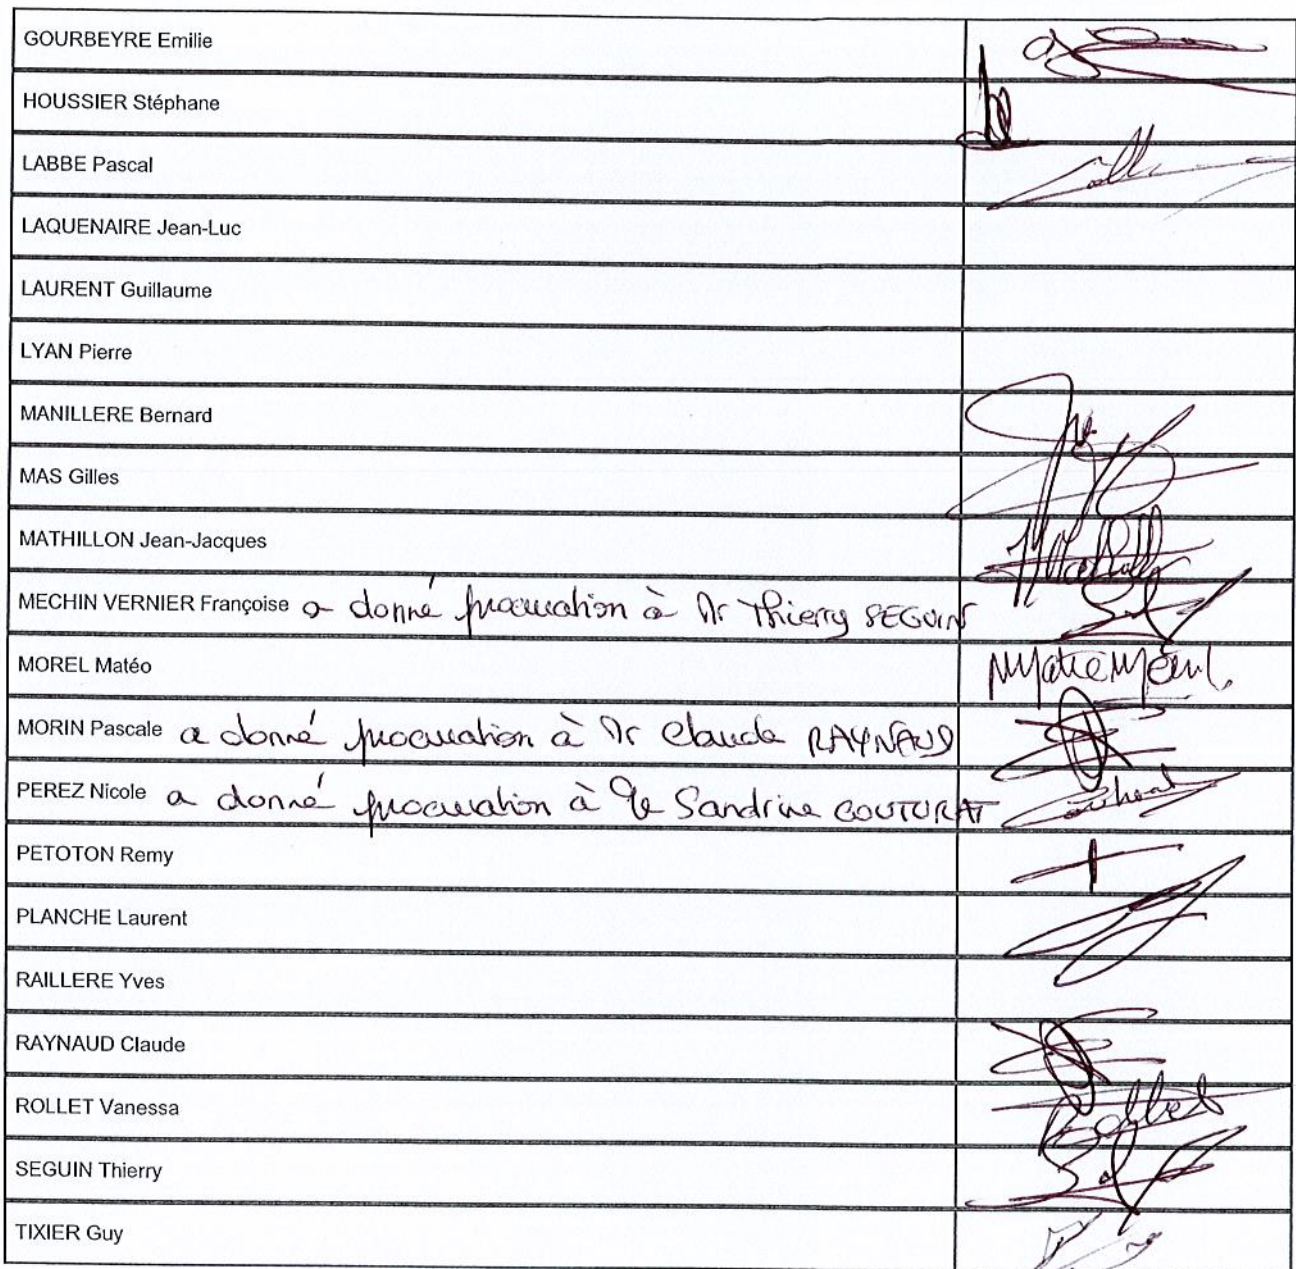 GOURBEYRE Emilie
HOUSSIER Stéphane
LABBE Pascal
LAQUENAIRE Jean-Luc
LAURENT Guillaume
LYAN Pierre
MANILLERE Bernard
MAS Gilles
MATHILLON Jean-Jacques
MECHIN VERNIER Françoise a donné procuration à Mr Thierry SEGUIN
MOREL Matéo
MORIN Pascale a donné procuration à Mr Claude RAYNAUD
PEREZ Nicole a donné procuration à Me Sandrine COUTURAT
PETOTON Remy
PLANCHE Laurent
RAILLERE Yves
RAYNAUD Claude
ROLLET Vanessa
SEGUIN Thierry
TIXIER Guy